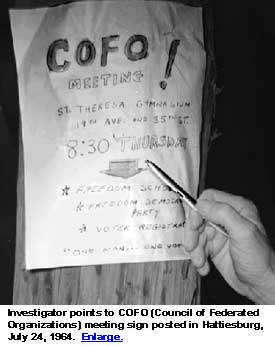 COFO!
MEETING
ST. THERESA GYMNASIUM
19TH AVE. AND 35TH ST.
8:30 THURSDAY
FREEDOM
FREEDOM
PARTY
VOTER REGISTRAT
"ONE MAN - ONE VOT
Investigator points to COFO (Council of Federated
Organizations) meeting sign posted in Hattiesburg,
July 24, 1964. Enlarge.